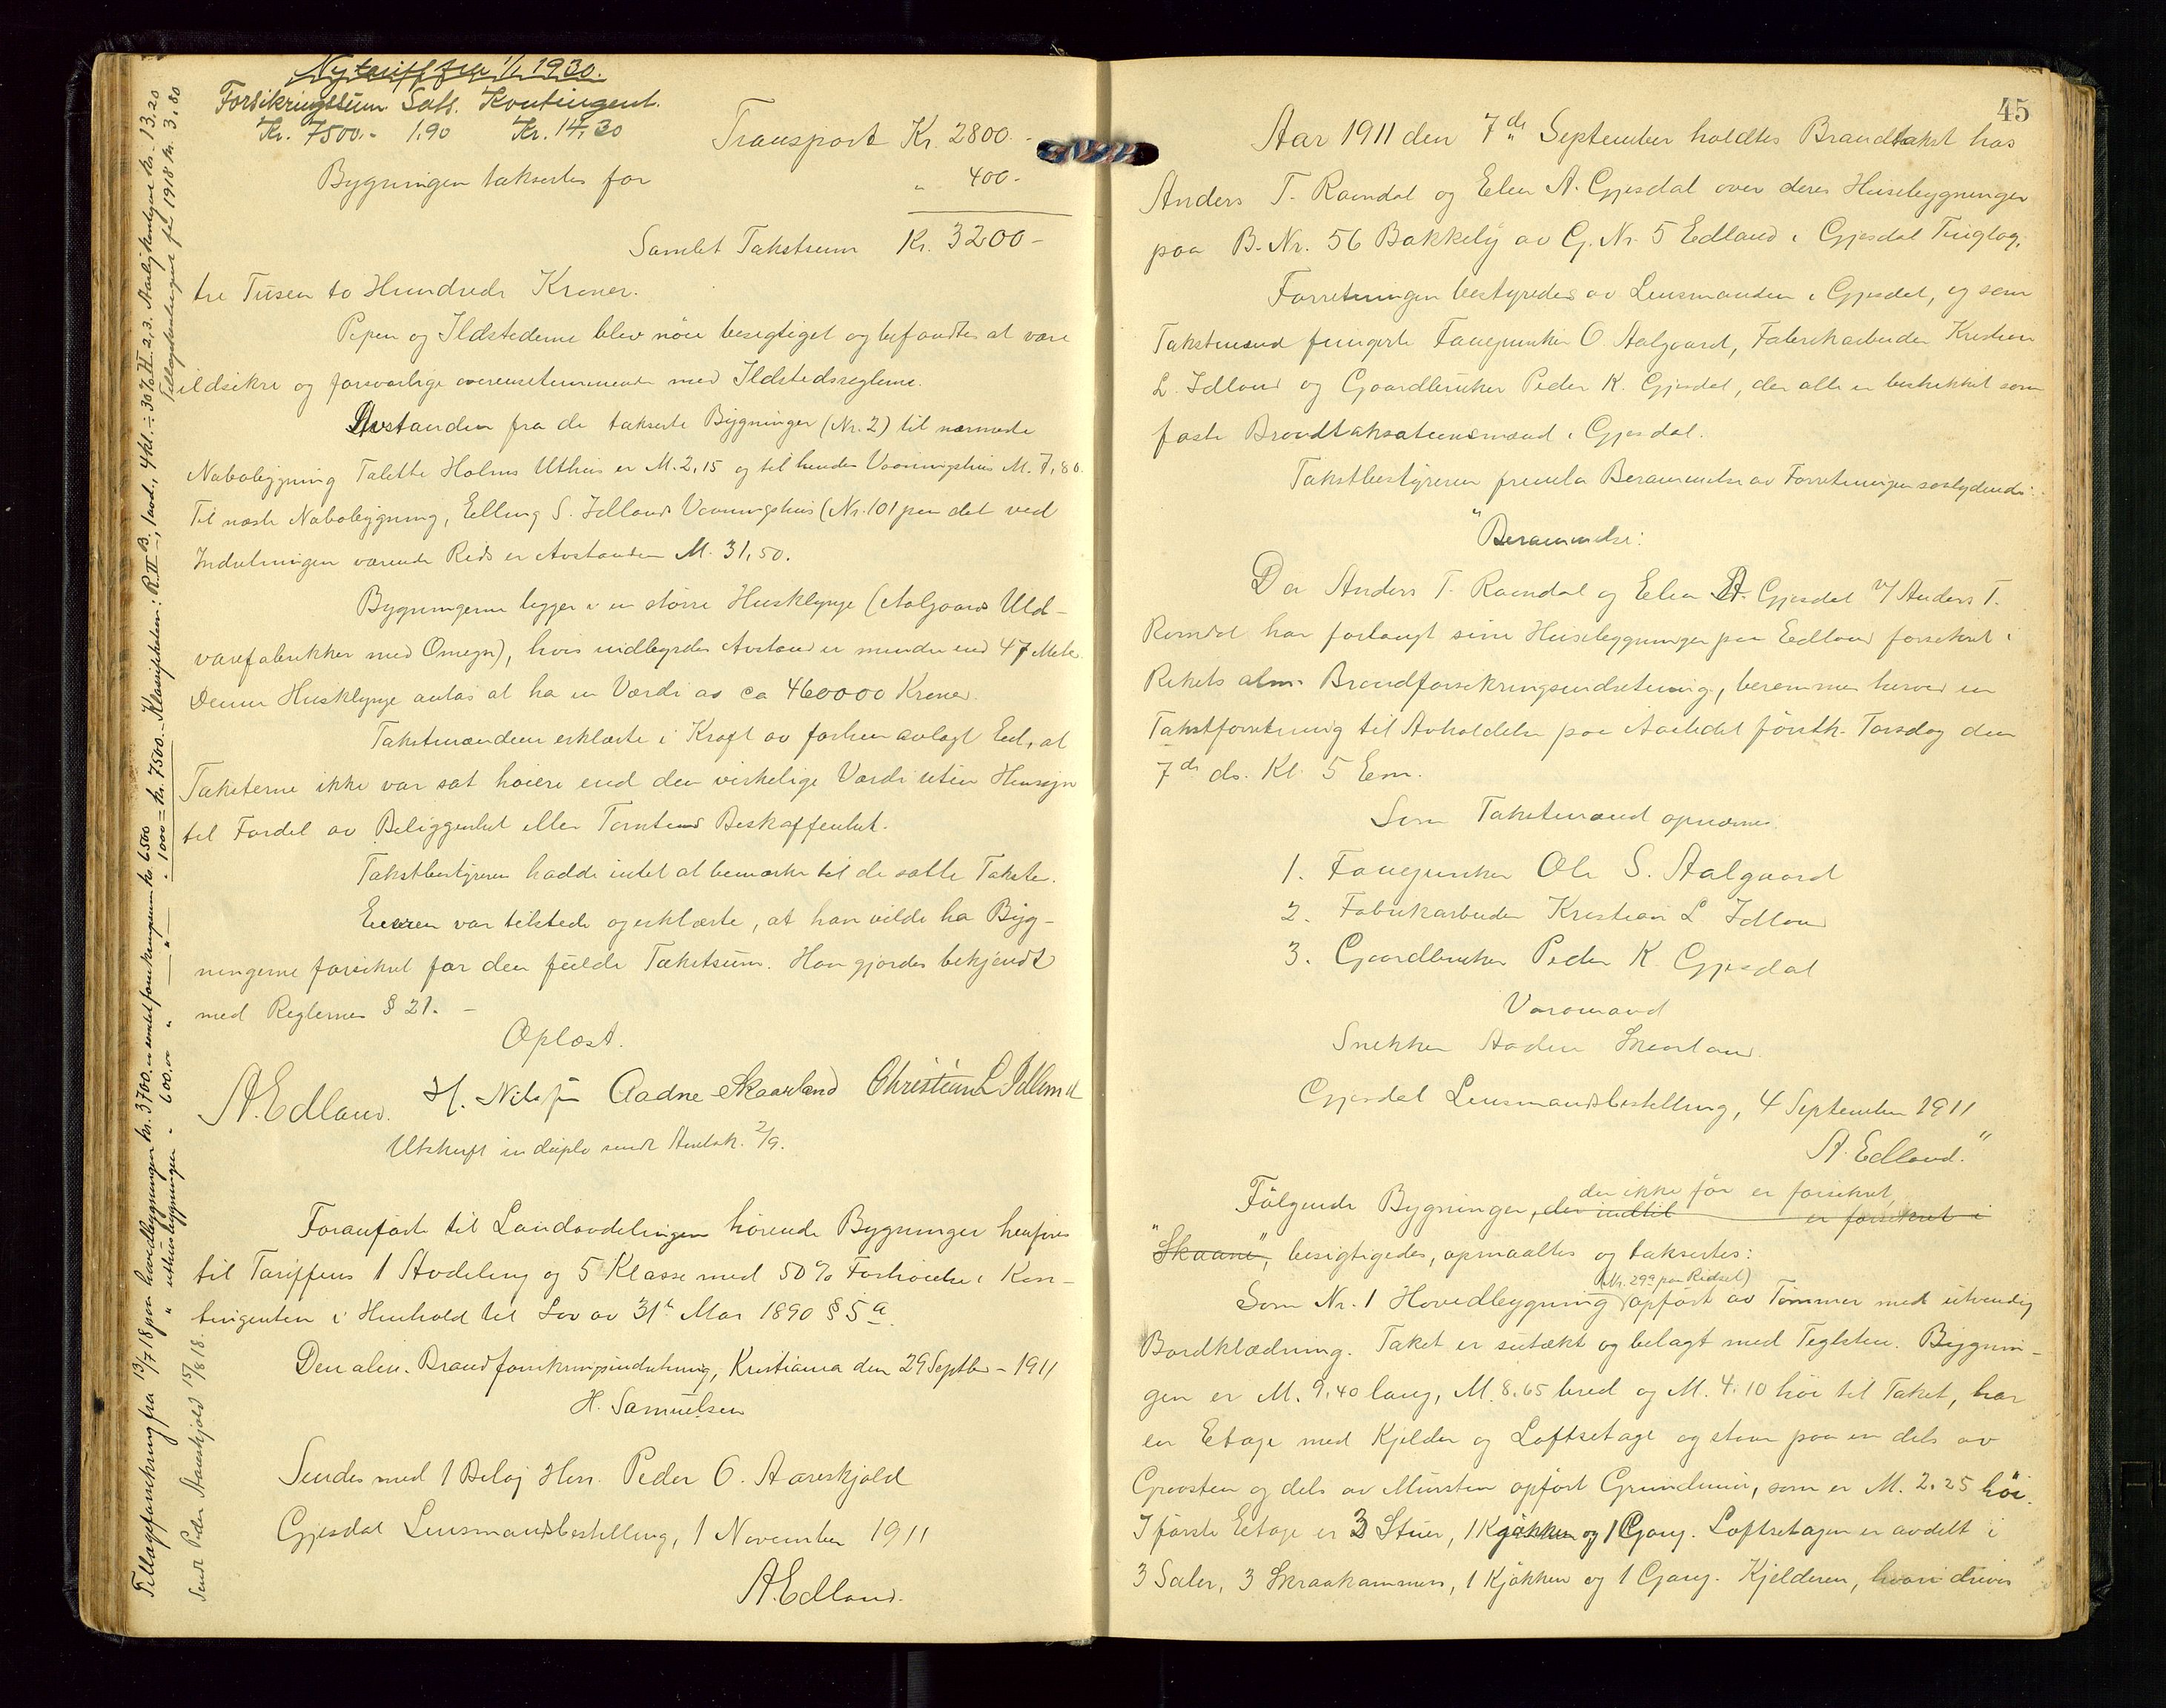 Ny tariff fra 1/1 1930.
Forsikringssum Sats. Kontingent.
Kr. 7500.- 1.90 Kr. 14,30
Transport Kr. 2800.-
Bygningen takseres for " 400.-
Samlet Takstsum Kr. 3200-
tre Tusen to Hundrede Kroner.
Pipen og Ildstederne blev nöie besigtiget og befandtes at være
ildsikre og forsvarlige overensstemmende med Ildstedsreglerne.
Avstanden fra de takserte Bygninger (Nr. 2) til nærmeste
Nabobygning Talette Holms Uthus er M. 2,15 og til hendes Vaaningshus M. 7,80.
Til næste Nabobygning, Elling S. Idlands Vaaningshus (Nr. 10 1 paa det ved
Indretningen værende Rids er Avstanden M. 31,50.
Bygningerne ligger i en större Husklynge (Aalgaards Uld-
varefabrikker med Omegn), hvis indbyrdes Avstand er mindre end 47 Meter.
Denne Husklynge antas at ha en Værdi av ca 460000 Kroner.
Takstmændene erklærte i Kraft av forhen avlagt Ed, at
Taksterne ikke var sat höiere end den virkelige Værdi uten Hensyn
til Fordel av Beliggenhet eller Tomtens Beskaffenhet.
Takstbestyreren hadde intet at bemærke til de satte Takster.
Eieren var tilstede og erklærte, at han vilde ha Byg-
ningerne forsikret for den fulde Takstsum. Han gjordes bekjendt
med Reglernes § 21. -
Oplæst.
A. Edland. H. Nilsen Aadne Skaarland Christian L Idland
Utskrift in duplo sendt Amtsk. 2/9.
Foranförte til Landavdelingen hörende Bygninger henföres
til Tariffens 1 Avdeling og 5 Klasse med 50% Forhöielse i Kon-
tingenten i Henhold til Lov av 31te Mai 1890 § 5 a.
Den alm. Brandforsikringsindretning, Kristiania den 29 Septbr - 1911
H. Samuelsen
Sendes med 1 Bilag Herr. Peder O. Aareskjold
Gjesdal Lensmandsbestilling, 1 November 1911
A. Edland.
Tillægsforsikring fra 13/7 18 paa hovedbygningen kr. 3700.- samlet forsikringssum kr. 6500
" " uthusbygningen " 600,00 " " " 1000 = kr. 7500.- Klassifikation: R. II B, 1 avd., 4 kl. ÷ 30% II. 2,3. Aarlig kontingent kr. 13,20
Tillægskontingent for 1918 kr. 3,80
Sendt Peder Aareskjold 15/8 18.
45
Aar 1911 den 7de September holdtes Brandtakst hos
Anders T. Ravndal og Elen A. Gjesdal over deres Husebygninger
paa B. Nr. 56 Bakkely av G. Nr. 5 Edland i Gjesdal Tinglag.
Forretningen bestyredes av Lensmanden i Gjesdal, og som
Takstmænd fungerte Fanejunker O Aalgaard, Fabrikarbeider Kristian
L. Idland og Gaardbruker Peder K. Gjesdal, der alle er beskikket som
faste Brandtaksationsmænd i Gjesdal.
Takstbestyreren fremla Berammelse av Forretningen saalydende:
"Berammelse:
Da Anders T. Ravndal og Elen A. Gjesdal v/ Anders T.
Ravndal har forlangt sine Husebygninger paa Edland forsikret i
Rikets alm. Brandforsikringsindretning, berammes herved en
Takstforretning til Avholdelse paa Aastedet förstk. Torsdag den
7de ds. Kl. 5 Em.
Som Takstmænd opnævnes
1. Fanejunker Ole S. Aalgaard
2. Fabrikarbeider Kristian L Idland
3. Gaardbruker Peder K Gjesdal
Varamand
Snekker Aadne Skaarland.
Gjesdal Lensmandsbestilling, 4 September 1911
A. Edland."
der ikke för er forsikret,
Fölgende Bygninger, der indtil er forsikret i
"Skaane", besigtigedes, opmaaltes og takseredes:
(Nr. 29a paa Ridset)
Som Nr. 1 Hovedbygning opfört av Tömmer med utvendig
Bordklædning. Taket er sutækt og belagt med Teglsten. Bygnin-
gen er M. 9,40 lang, M. 8,65 bred og M. 4,10 höi til Taket, har
en Etage med Kjelder og Loftsetage og staar paa en dels av
Graasten og dels av Mursten opfört Grundmur, som er M. 2.25 höi.
I förste Etage er 3 Stuer, 1 Kjökken og 1 Gang. Loftsetagen er avdelt i
3 Saler, 3 Skraakammers, 1 Kjökken og 1 Gang. Kjelderen, hvori drives